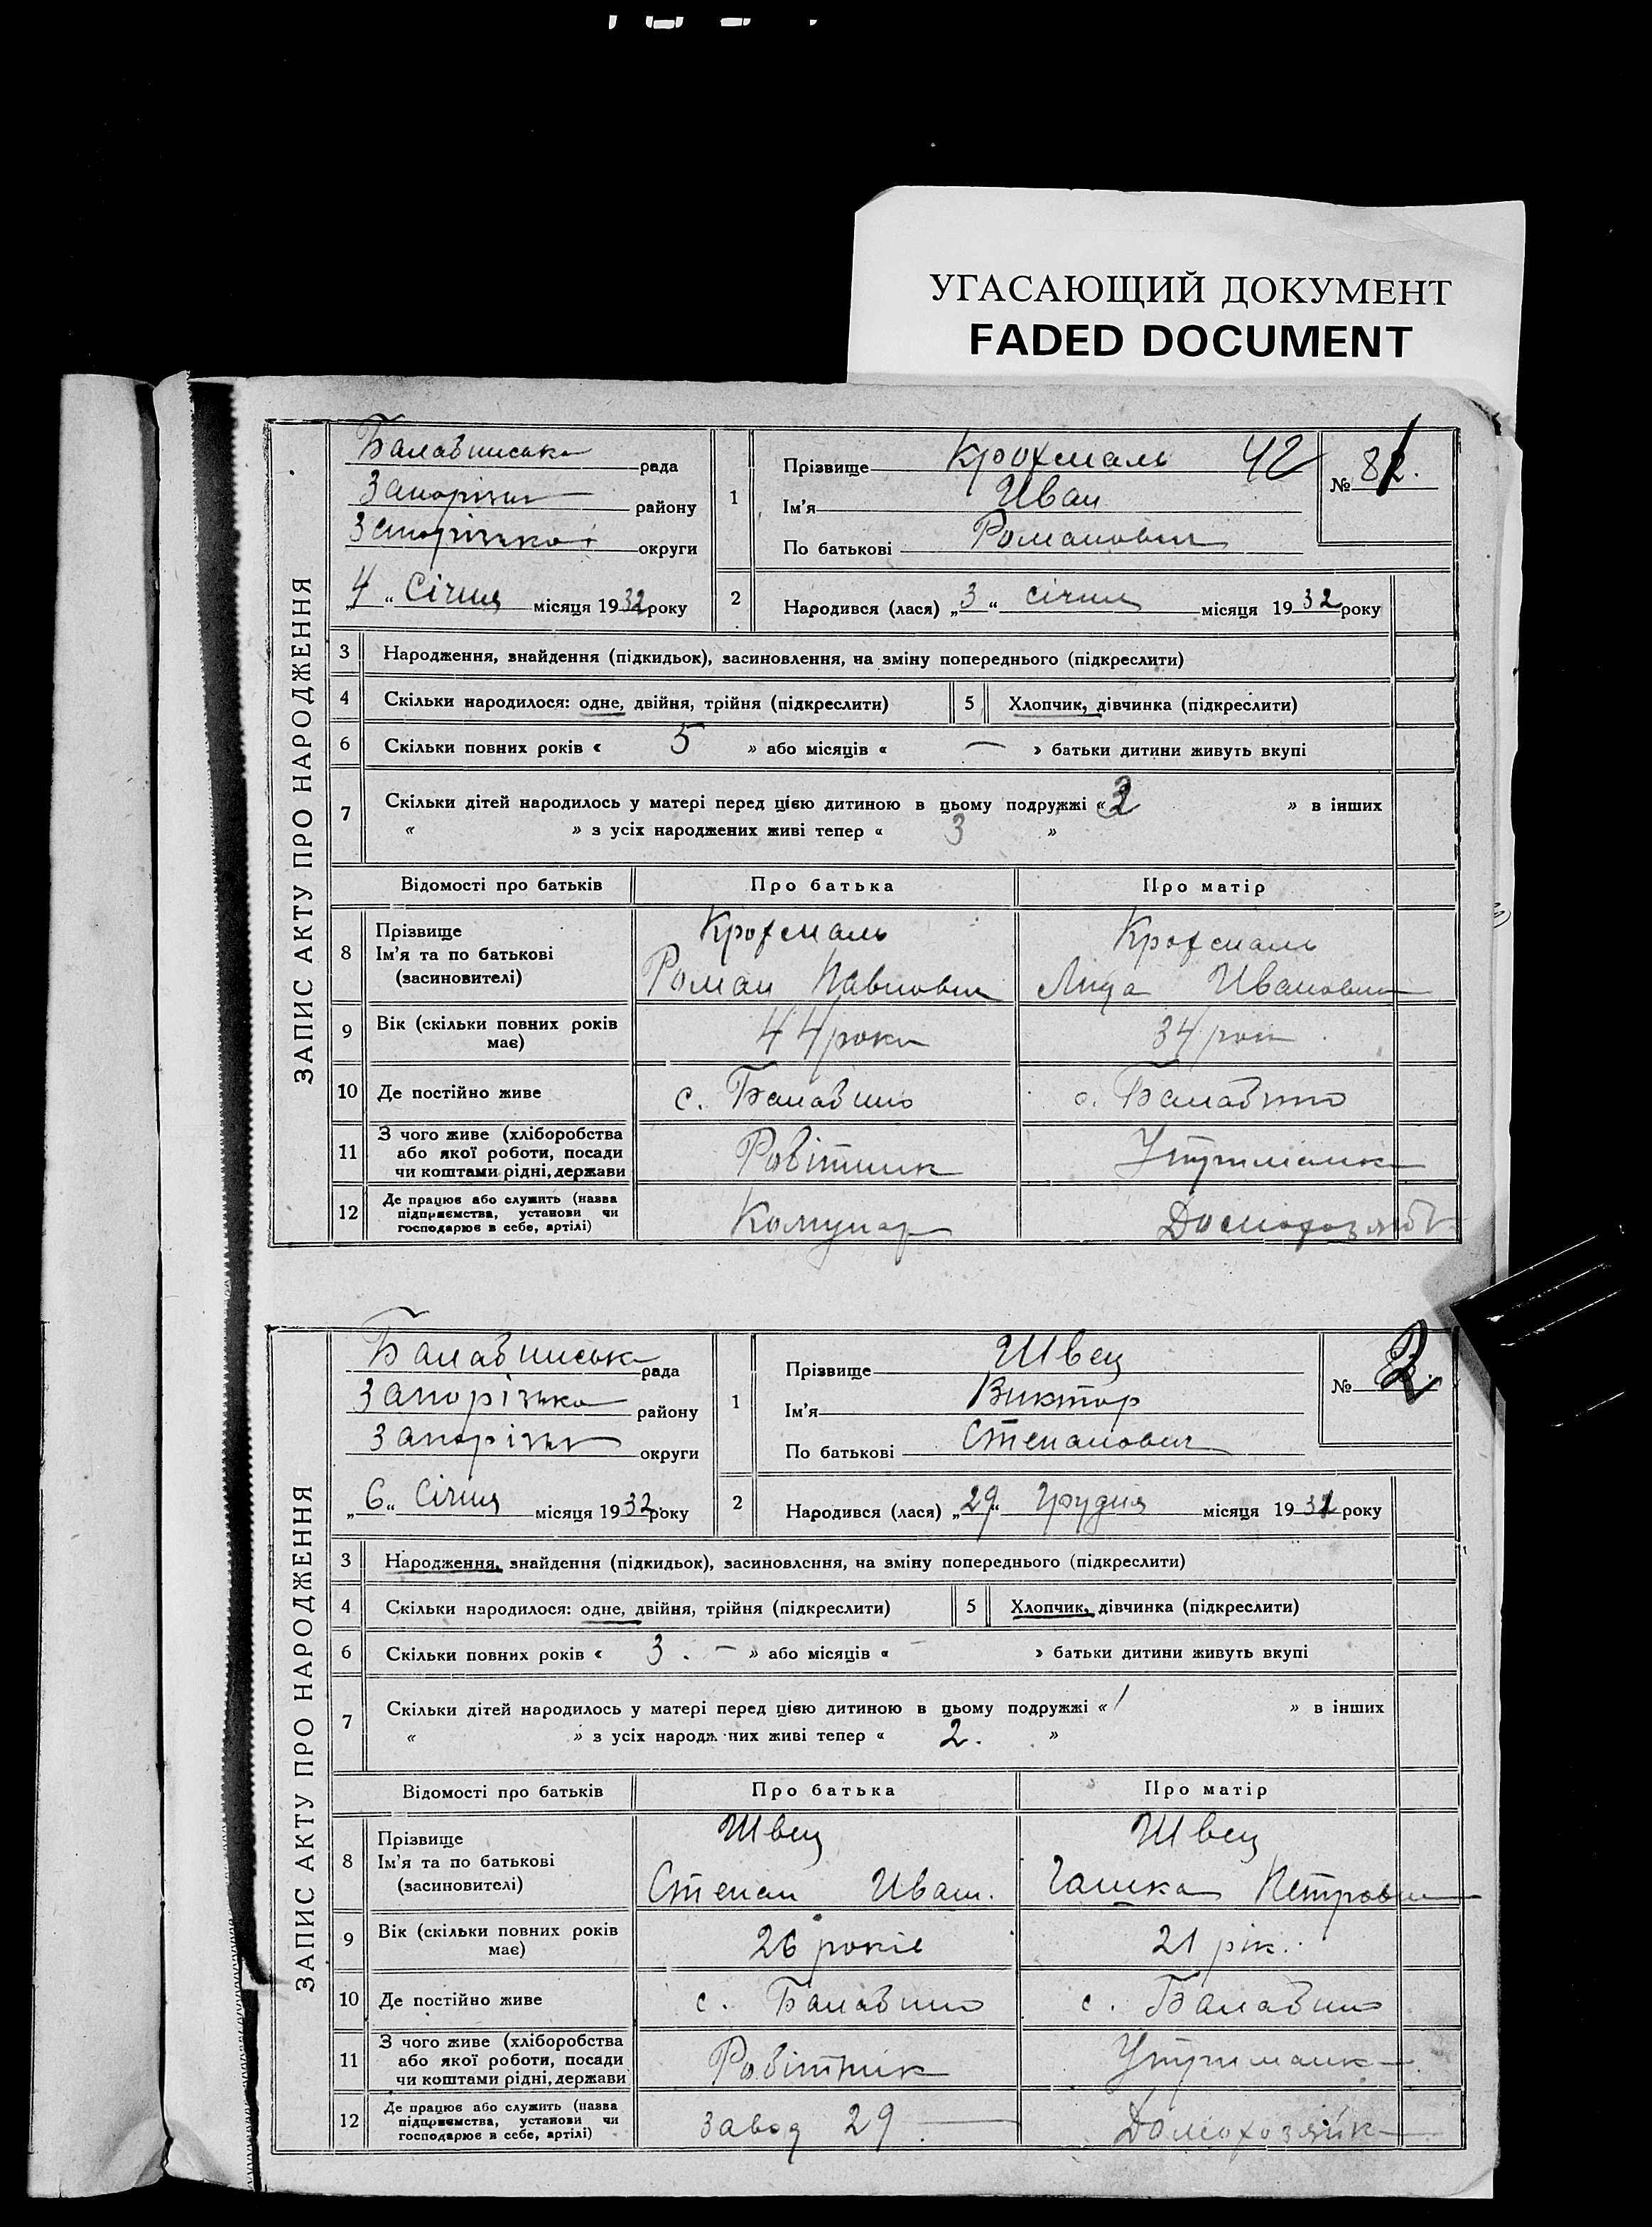 УГАСАЮЩИЙ ДОКУМЕНТ
FADED DOCUMENT
ЗАПИС АКТУ ПРО НАРОДЖЕННЯ
Балабинська рада
Запорізьк району
Запорізької округи
„4“ Січня місяця 1932 року
1
Прізвище Крохмаль 42
Ім'я Иван
По батькові Романович
№ 1.
2 Народився (лася) „3“ січня місяця 1932 року
3 Народження, знайдення (підкидьок), засиновлення, на зміну попереднього (підкреслити)
4 Скільки народилося: одне, двійня, трійня (підкреслити) 5 Хлопчик, дівчинка (підкреслити)
6 Скільки повних років « 5 » або місяців « — » батьки дитини живуть вкупі
7 Скільки дітей народилось у матері перед цією дитиною в цьому подружжі « » в інших
« » з усіх народжених живі тепер « 3 »
Відомості про батьків Про батька Про матір
8 Прізвище
Ім'я та по батькові
(засиновителі)
Крохмаль
Роман Павлович
Крохмаль
Лида Ивановн
9 Вік (скільки повних років має) 44 роки 34 рок
10 Де постійно живе с. Балабино с. Балабино
11 З чого живе (хліборобства
або якої роботи, посади
чи коштами рідні, держави
Робітник Утриманк
12 Де працює або служить (назва
підприємства, установи чи
господарює в себе, артілі)
Комунар Домохозяй
ЗАПИС АКТУ ПРО НАРОДЖЕННЯ
Балабинська рада
Запорізька району
Запорізьк округи
„6“ Січня місяця 1932 року
1
Прізвище Швец
Ім'я Виктор
По батькові Степанович
№ 2.
2 Народився (лася) „29“ Грудня місяця 1931 року
3 Народження, знайдення (підкидьок), засиновлення, на зміну попереднього (підкреслити)
4 Скільки народилося: одне, двійня, трійня (підкреслити) 5 Хлопчик, дівчинка (підкреслити)
6 Скільки повних років « 3. — » або місяців « — » батьки дитини живуть вкупі
7 Скільки дітей народилось у матері перед цією дитиною в цьому подружжі « 1 » в інших
« » з усіх народжених живі тепер « 2. »
Відомості про батьків Про батька Про матір
8 Прізвище
Ім'я та по батькові
(засиновителі)
Швец
Степан Иван.
Швец
Гашка Петровн
9 Вік (скільки повних років має) 26 років 21 рік.
10 Де постійно живе с. Балабино с. Балабино
11 З чого живе (хліборобства
або якої роботи, посади
чи коштами рідні, держави
Робітник Утриманк
12 Де працює або служить (назва
підприємства, установи чи
господарює в себе, артілі)
Завод 29 Домохозяйк